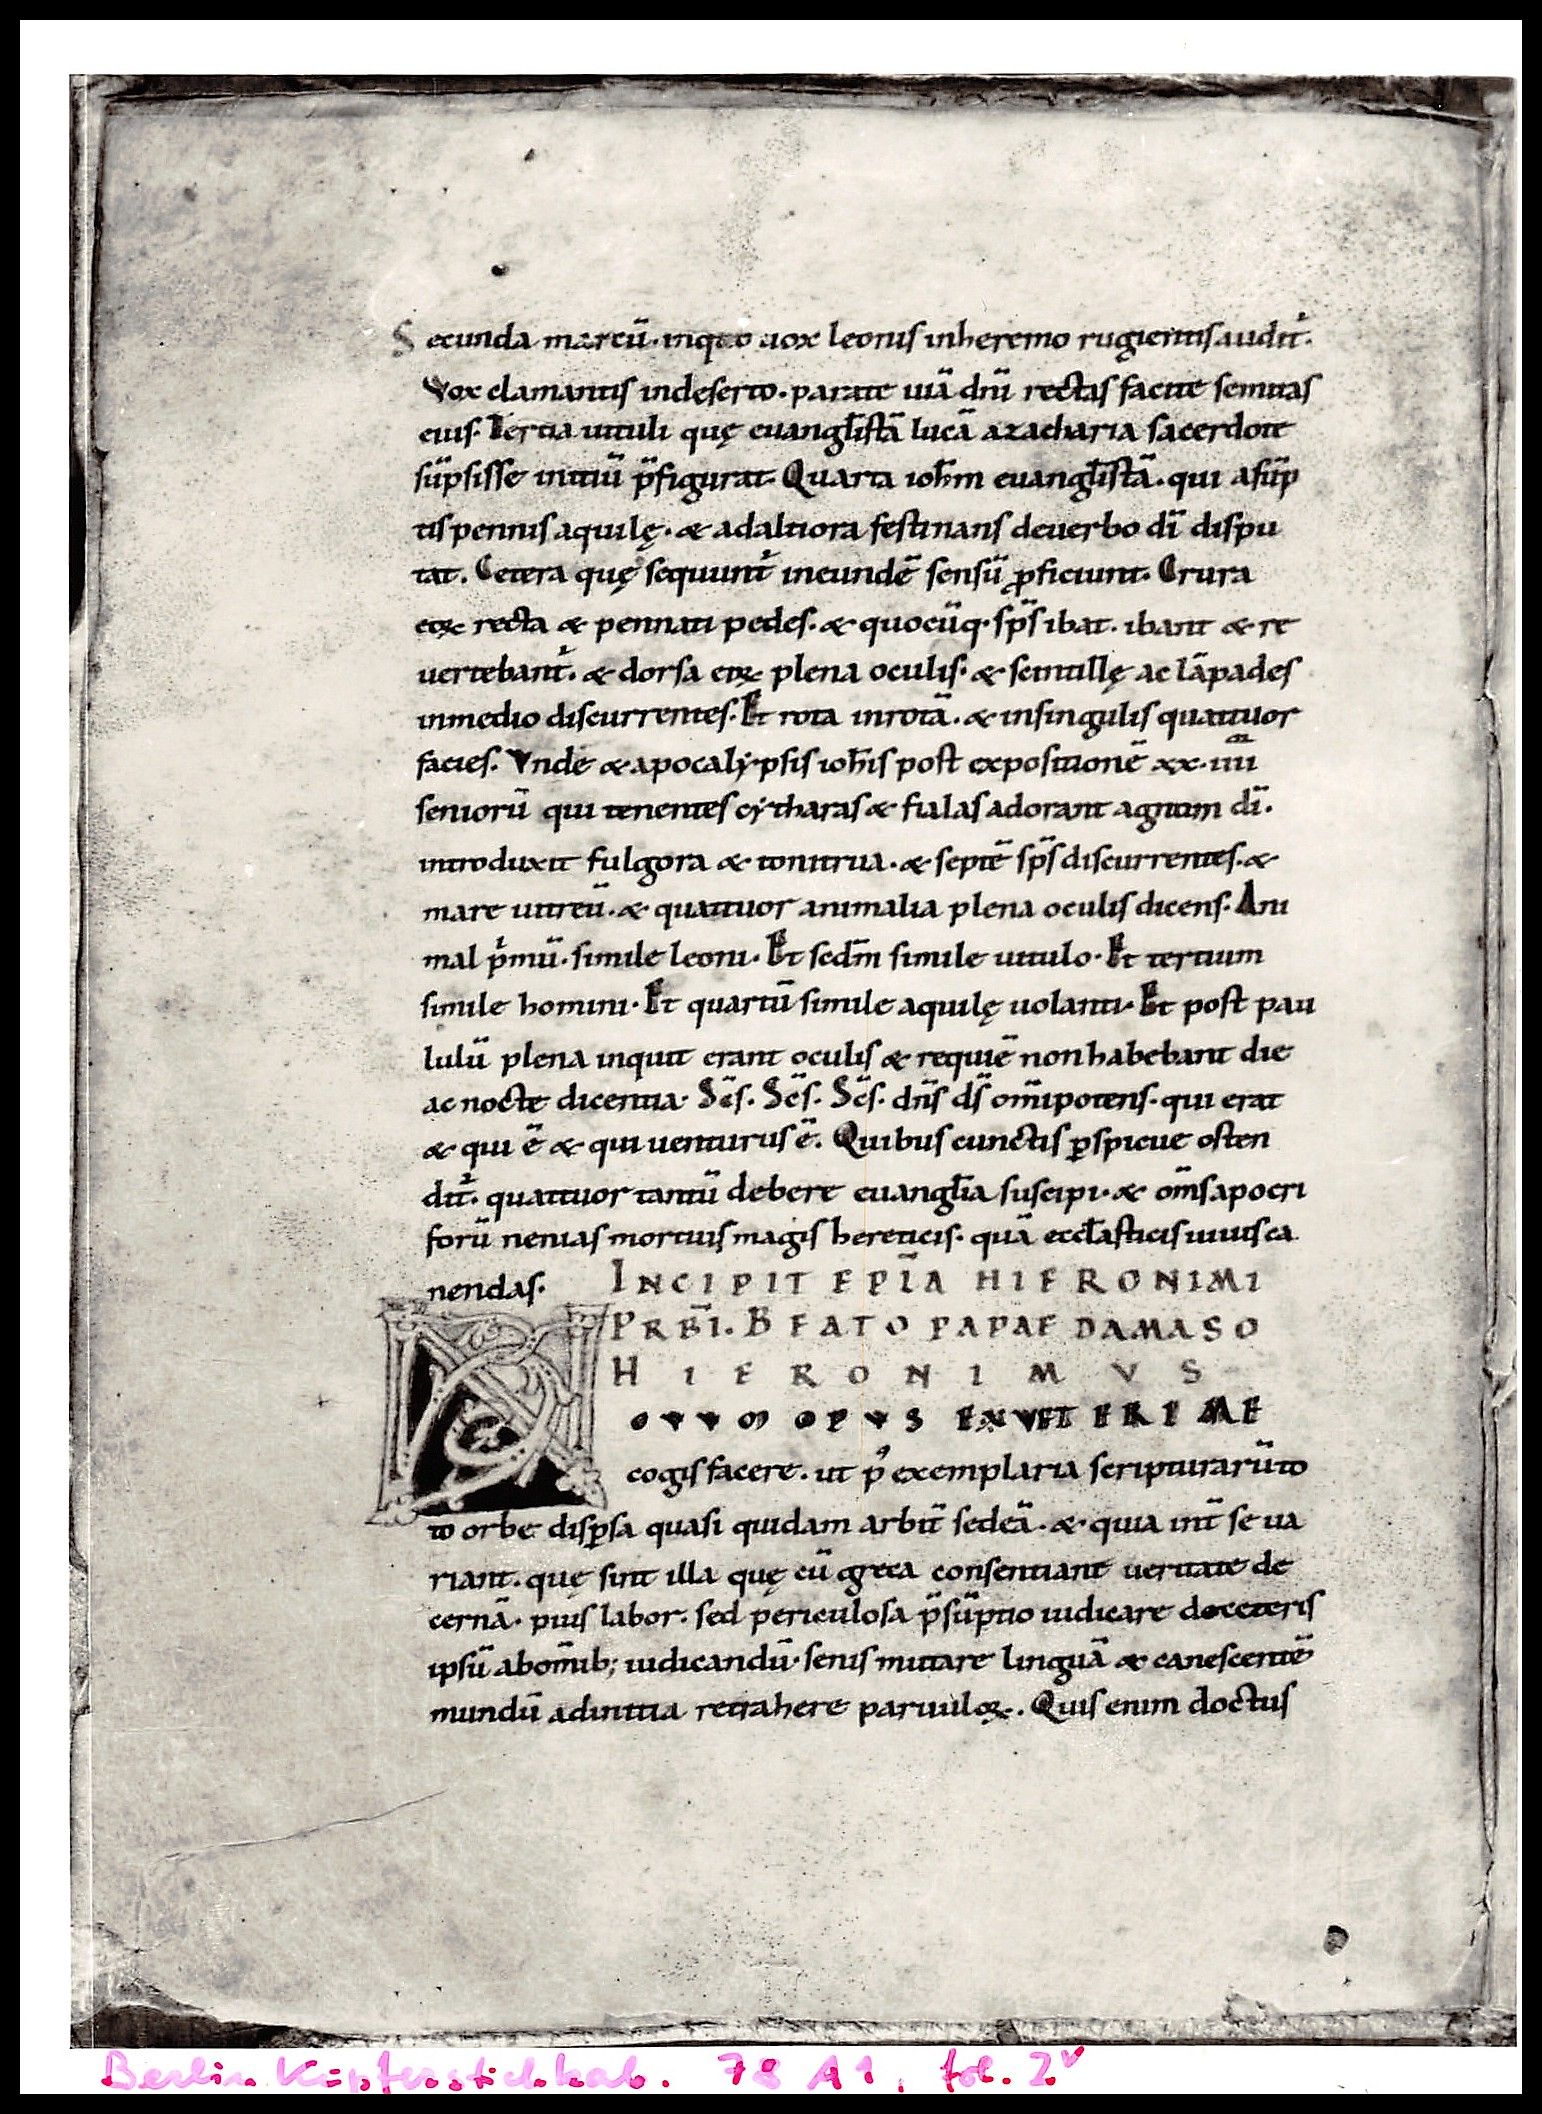 Secunda marcū. inquo uox leonis inheremo rugientis audit᷑.
Vox clamantis indeserto. parate uiā dn̄i rectas facite semitas
eius. Tertia uituli quę euangl̄istā lucā azacharia sacerdote
sūpsisse initiū p̄figurat. Quarta ioh̄m euangl̄istā. qui asūp
tis pennis aquilę. & adaltiora festinans deuerbo dī dispu
tat. Cetera quę sequunt᷑ ineundē sensū ꝓficiunt. Crura
eoꝝ recta & pennati pedes. & quocūq· sp̄s ibat. ibant & re
uertebant᷑. & dorsa eoꝝ plena oculis. & scintillę ac lāpades
inmedio discurrentes. Et rota inrotā. & insingulis quattuor
facies. Vnde & apocalẏpsis ioh̄is post expositionē xx. iiii
seniorū qui tenentes cẏtharas & fialas adorant agnum dī.
introduxit fulgora & tonitrua. & septē sp̄s discurrentes. &
mare uitreū. & quattuor animalia plena oculis dicens. Ani
mal pͥmū. simile leoni. Et secd̄m simile uitulo. Et tertium
simile homini. Et quartū simile aquilę uolanti. Et post pau
lulū plena inquit erant oculis & requiē non habebant die
ac nocte dicentia. Sc̄s. Sc̄s. Sc̄s. dn̄s ds̄ om̄ipotens. qui erat
& qui ē & qui uenturus ē. Quibus cunctis ꝑspicue osten
dit᷑. quattuor tantū debere euangl̄ia suscipi. & om̄s apocri
forū nenias mortuis magis hereticis. quā eccl̄asticis uiuis ca
nendas. INCIPIT EPL̄A HIERONIMI
PRB̄I. BEATO PAPAE DAMASO
HIERONIMVS
NOVVM OPVS EX VETERE ME
cogis facere. ut p᷒ exemplaria scripturarū to
to orbe disꝑsa quasi quidam arbit̄ sedeā. & quia int̄ se ua
riant. quę sint illa quę cū greca consentiant ueritate de
cernā. pius labor. sed periculosa p̄sūptio iudicare deceteris
ipsū abom̄ib; iudicandū. senis mutare linguā & canescentē
mundū adinitia retrahere paruuloꝝ. Quis enim doctus
Berlin Kupferstichkab. 78 A 1, fol. 2v